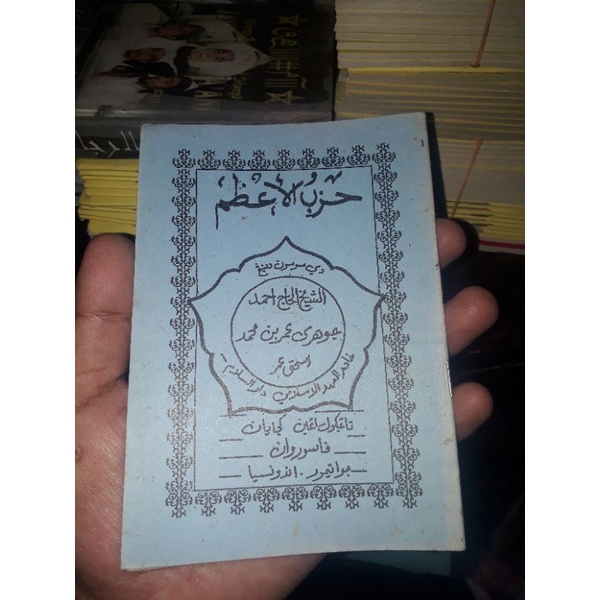 حزب الأعظم
دي سوسون اوليه
الشيخ الحاج احمد
جوهري عمر بن محمد
اسحق عمر
خادم المعهد الاسلامي دار السلام
تاغكول اغين كجايان
فاسوروان
جواتيمور . اندونسيا